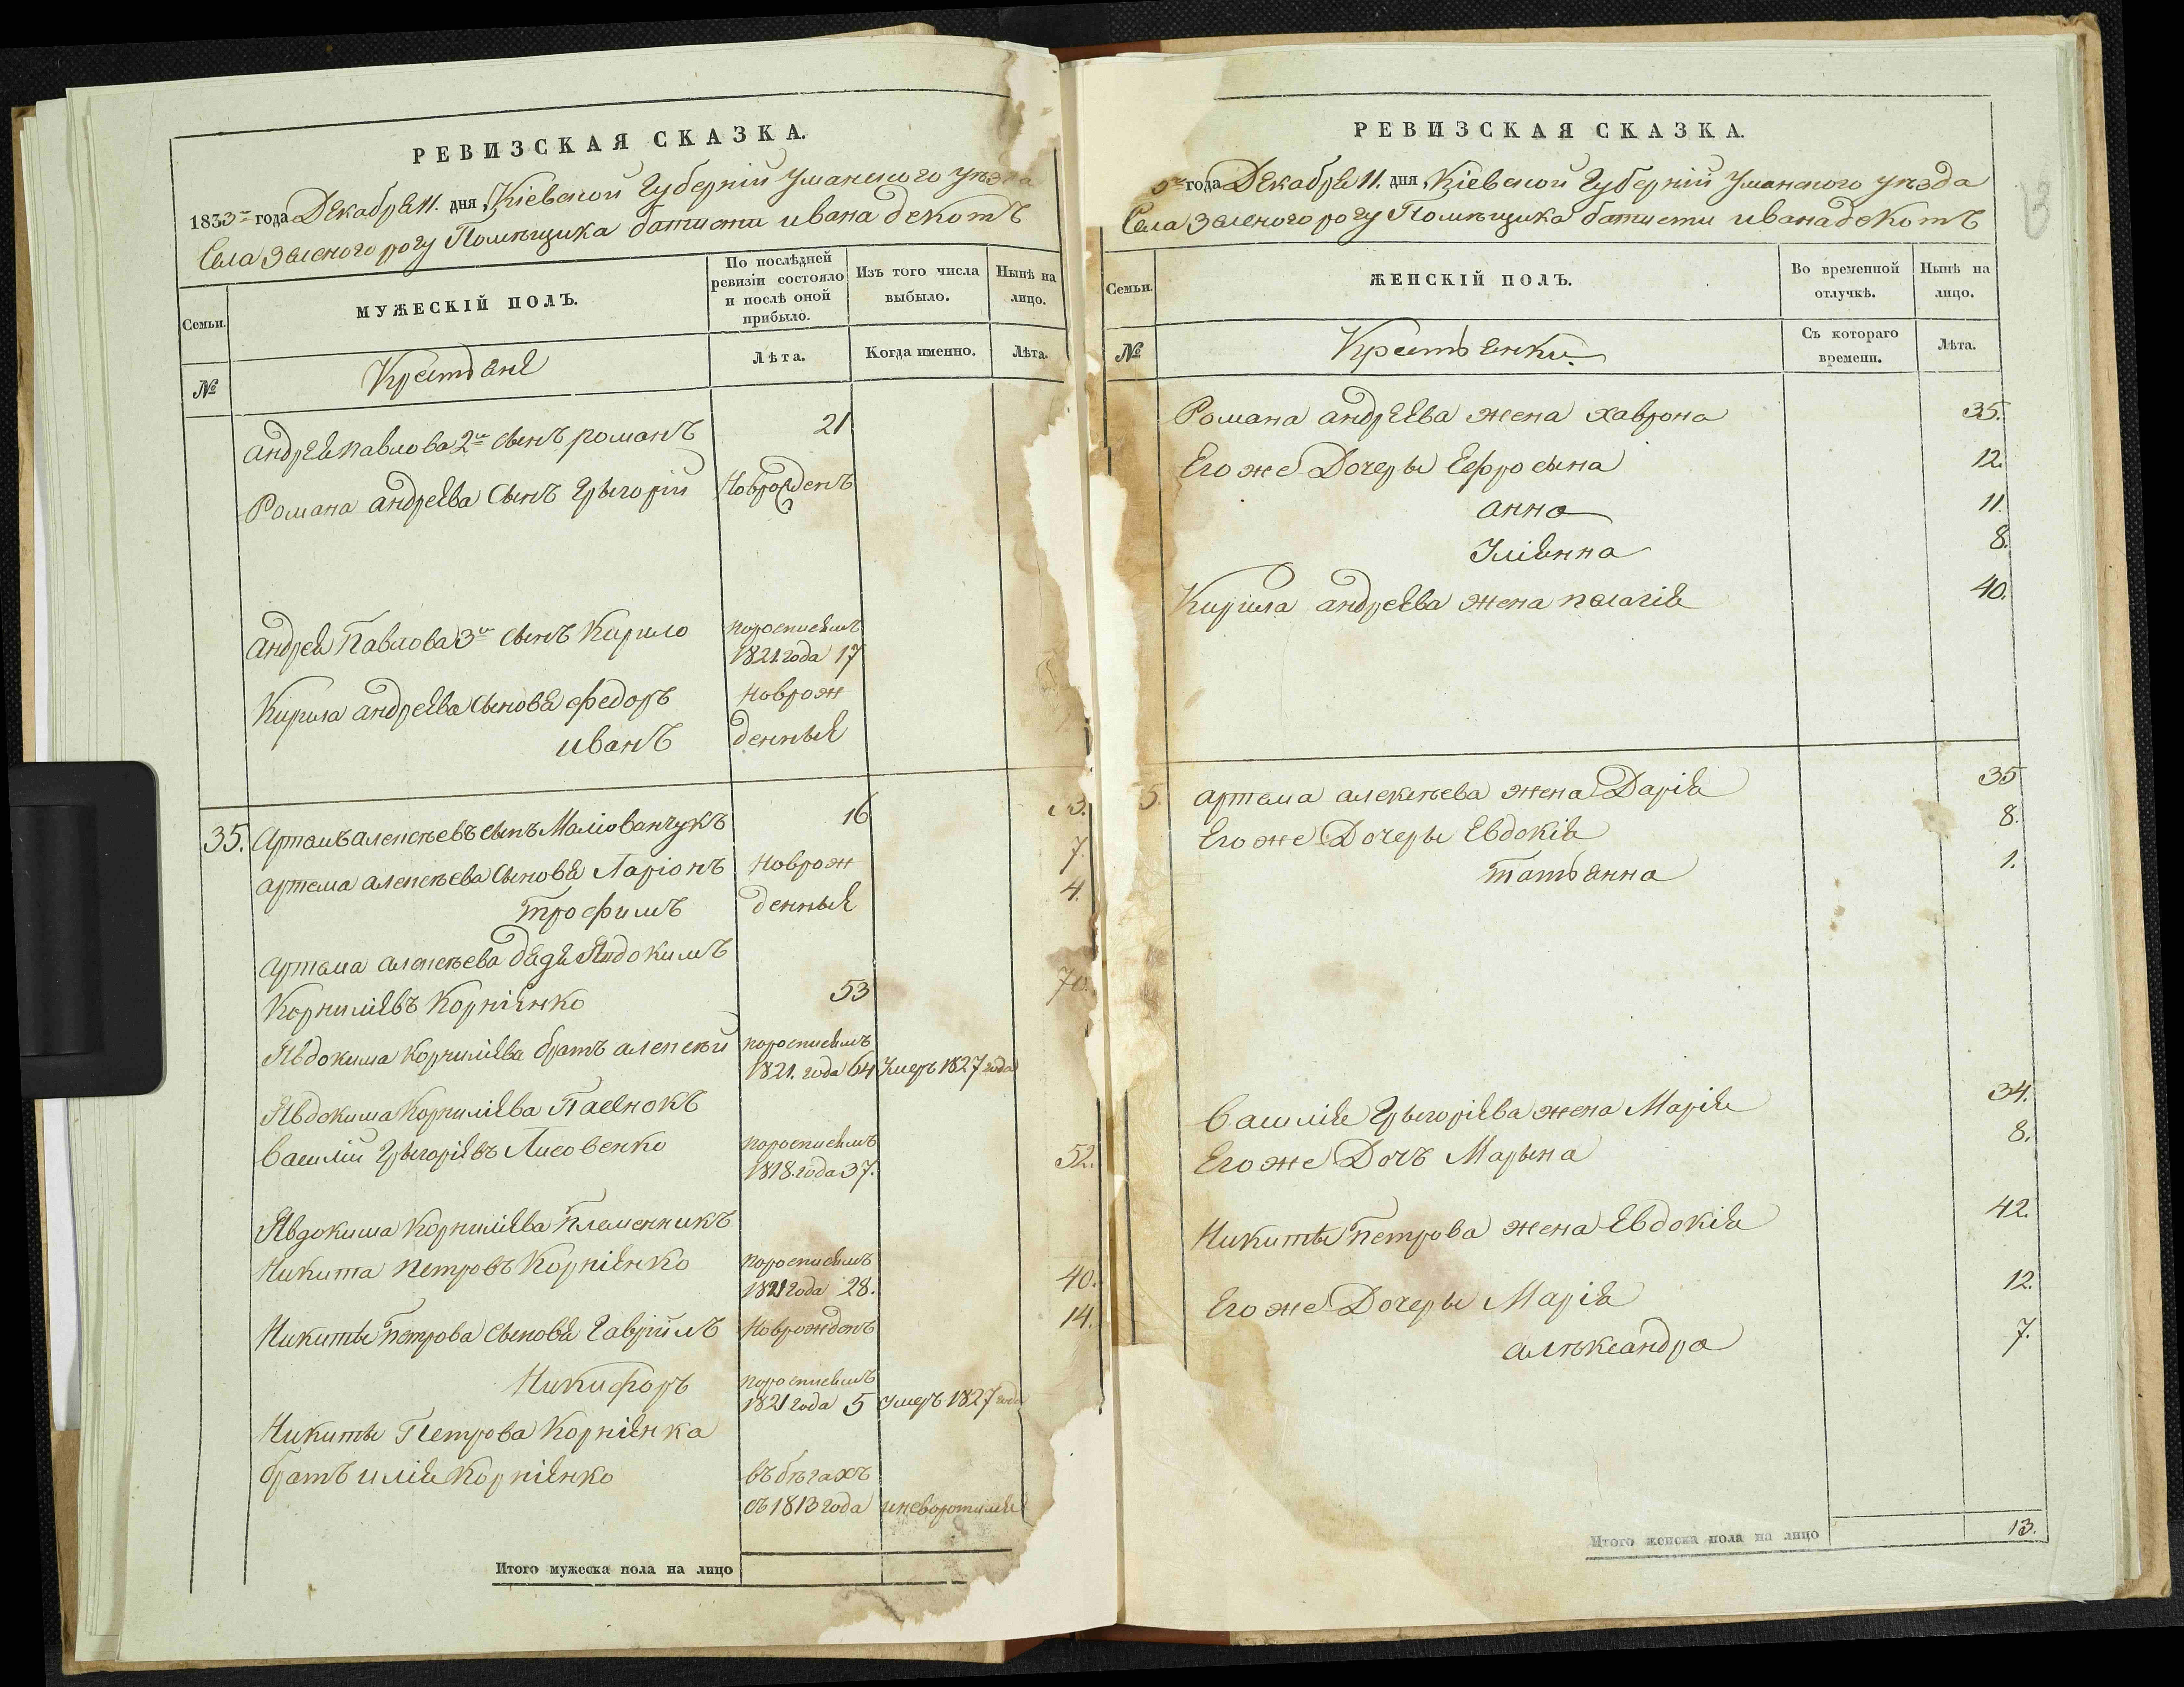 РЕВИЗСКАЯ СКАЗКА.
1833го года Декабря 11. дня, Кіевской Губерніи Уманского уезда
Села Зеленого рогу Помещика батисти ивана декотъ
Семьи.
МУЖЕСКІЙ ПОЛЪ.
По послѣдней ревизіи состояло и послѣ оной прибыло.
Изъ того числа выбыло.
Нынѣ на лицо.
№
Крестьяне
Лѣта.
Когда именно.
Лѣта.
андрея павлова 2й сынъ романъ 21
Романа андреева сынъ Грыгорій Новрожденъ
андрея Павлова 3й сынъ Кирило
1821 года 17
Кирила андреева сыновя федоръ Новрож
иванъ денныя
35. Артемъ алексѣевъ сынъ Маліованчукъ 16
артема алексѣева сыновя Ларіонъ Новрож 7.
трофимъ денныя 4.
артема алексѣева дядя Явдокимъ
Корниліевъ Корніенко 53 70.
Явдокима Корниліева братъ алексѣй
1821. года 64 Умеръ 1827 года
Явдокима Корниліева
василій Грыгоріевъ Лисовенко
1818. года 37. 52.
Явдокима Корниліева Племенникъ
Никита петровъ Корніенко
1821 года 28. 40.
Никиты петрова сыновя Гавріилъ Новрожденъ 14.
Никифоръ
1821 года 5 Умеръ 1827 года
Никиты Петрова Корніенка
братъ илія Корніенко въ бѣгахъ
съ 1813 года
Итого мужеска пола на лицо
РЕВИЗСКАЯ СКАЗКА.
года Декабря 11. дня, Кіевской Губерніи Уманского уезда
Села Зеленого рогу Помещика батисти ивана декотъ
Семьи.
ЖЕНСКІЙ ПОЛЪ.
Во временной отлучкѣ.
Нынѣ на лицо.
№
Крестьянки
Съ котораго времени.
Лѣта.
Романа андреева жена хаврона 35.
Его же Дочеры Ефросына 12.
анна 11.
Уліянна 8.
Кирила андреева жена пелагія 40.
5. артема алексѣева жена Дарія 35
Его же Дочеры Евдокія 8.
татьянна 1.
василія Грыгоріева жена Марія 34.
Его же Дочъ Марына 8.
Никиты петрова жена Евдокія 42.
Его же Дочеры Марія 12.
алѣксандра 7.
Итого женска пола на лицо 13.